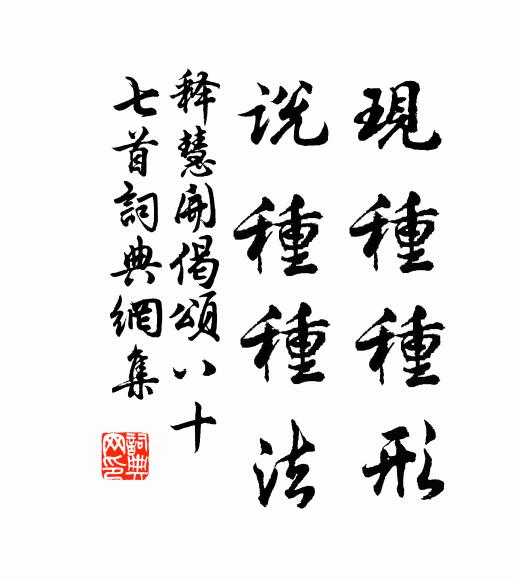 現種種形
説種種法
释慧開偈頌八十
七首詞典網集
詞典網印